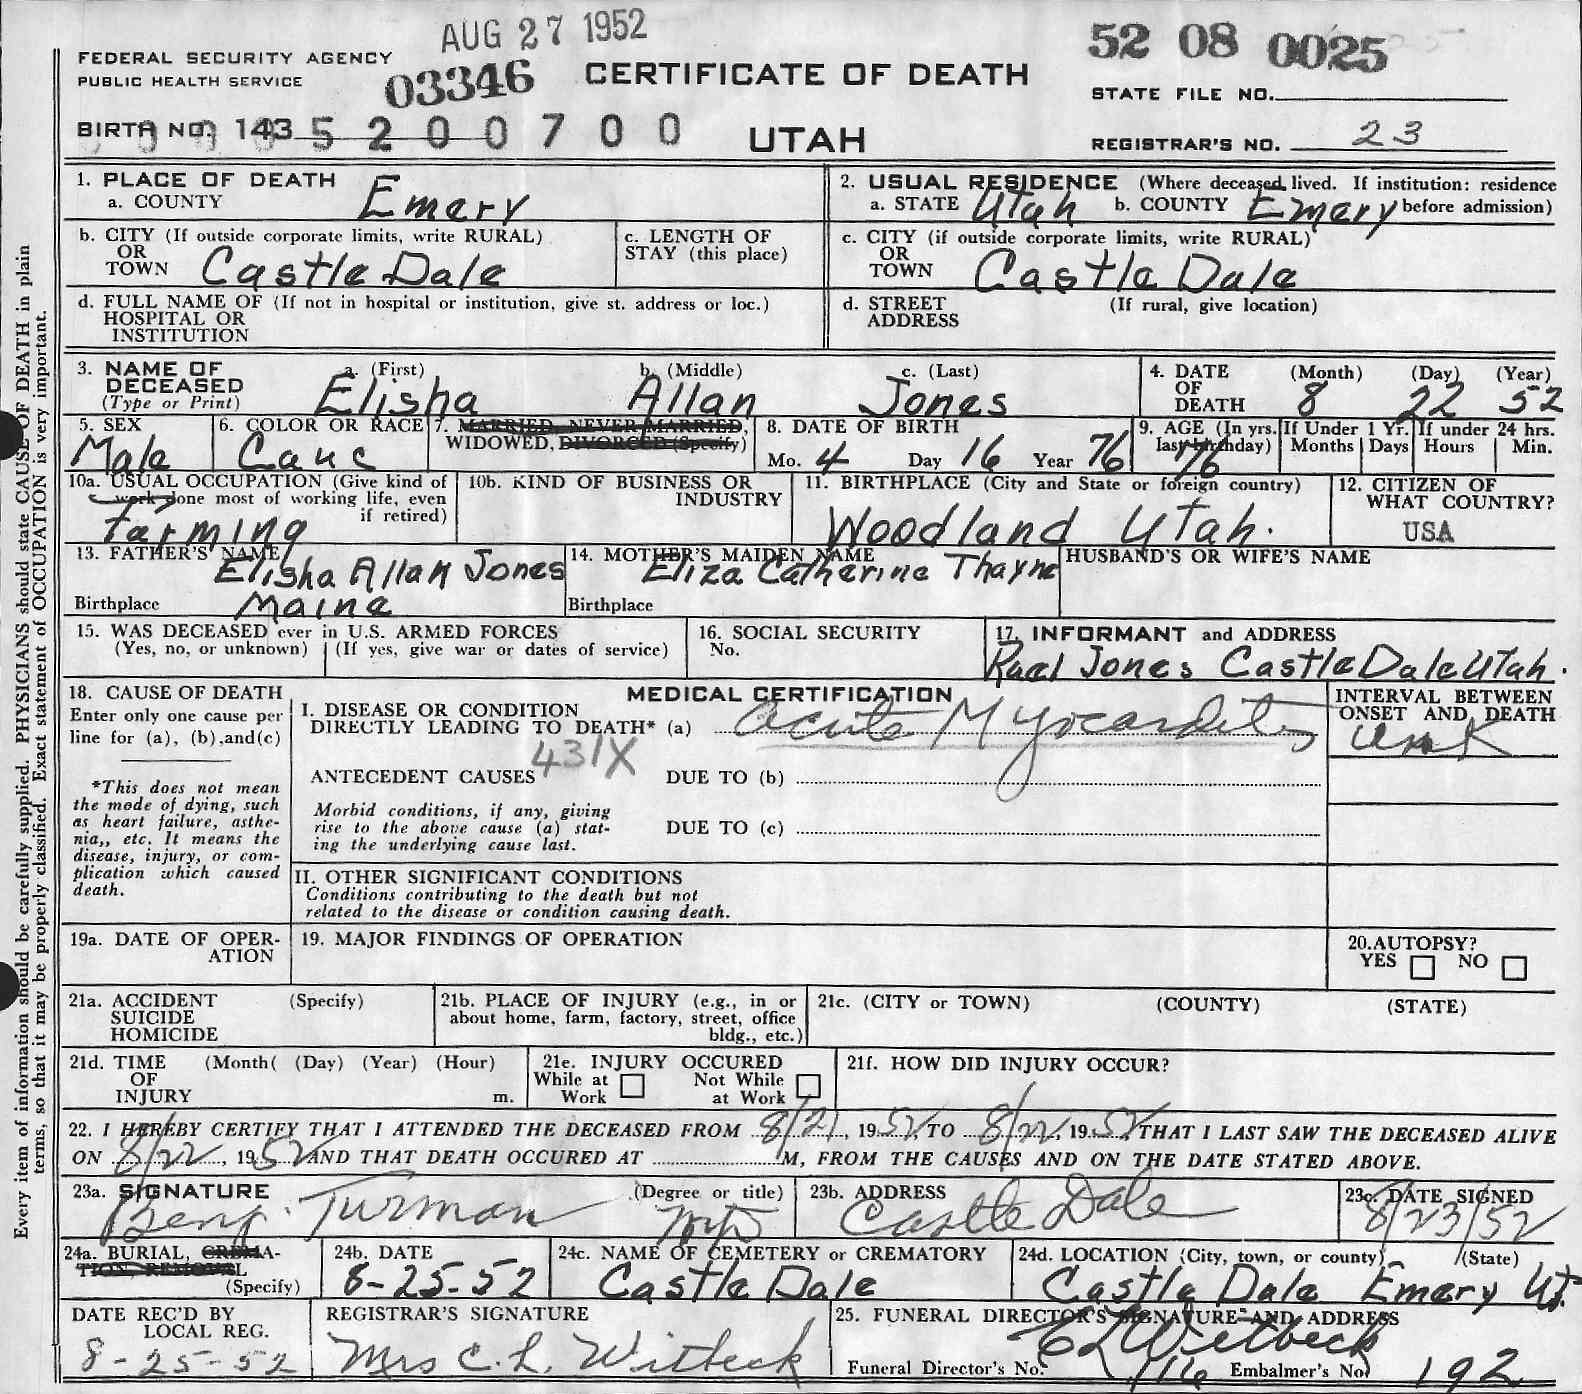 AUG 27 1952
52 08 0025
FEDERAL SECURITY AGENCY
PUBLIC HEALTH SERVICE
03346
CERTIFICATE OF DEATH
STATE FILE NO.
BIRTH NO. 143 5 2 0 0 7 0 0
UTAH
REGISTRAR'S NO. 23
1. PLACE OF DEATH
a. COUNTY Emery
2. USUAL RESIDENCE (Where deceased lived. If institution: residence
a. STATE Utah b. COUNTY Emery before admission)
b. CITY (If outside corporate limits, write RURAL)
OR
TOWN Castle Dale
c. LENGTH OF
STAY (this place)
c. CITY (if outside corporate limits, write RURAL)
OR
TOWN Castle Dale
d. FULL NAME OF (If not in hospital or institution, give st. address or loc.)
HOSPITAL OR
INSTITUTION
d. STREET (If rural, give location)
ADDRESS
3. NAME OF DECEASED
(Type or Print)
a. (First) b. (Middle) c. (Last)
Elisha Allan Jones
4. DATE OF DEATH
(Month) (Day) (Year)
8 22 52
5. SEX
Male
6. COLOR OR RACE
Cauc
7. MARRIED, NEVER MARRIED,
WIDOWED, DIVORCED (Specify)
8. DATE OF BIRTH
Mo. 4 Day 16 Year 76
9. AGE (In yrs. last birthday)
76
If Under 1 Yr.
Months Days
If under 24 hrs.
Hours Min.
10a. USUAL OCCUPATION (Give kind of
work done most of working life, even
if retired)
Farming
10b. KIND OF BUSINESS OR
INDUSTRY
11. BIRTHPLACE (City and State or foreign country)
Woodland Utah.
12. CITIZEN OF
WHAT COUNTRY?
USA
13. FATHER'S NAME
Elisha Allan Jones
Birthplace Maine
14. MOTHER'S MAIDEN NAME
Eliza Catherine Thayne
Birthplace
HUSBAND'S OR WIFE'S NAME
15. WAS DECEASED ever in U.S. ARMED FORCES
(Yes, no, or unknown) (If yes, give war or dates of service)
16. SOCIAL SECURITY
No.
17. INFORMANT and ADDRESS
Jones Castle Dale Utah.
18. CAUSE OF DEATH
Enter only one cause per
line for (a), (b), and (c)
*This does not mean
the mode of dying, such
as heart failure, asthe-
nia,, etc. It means the
disease, injury, or com-
plication which caused
death.
MEDICAL CERTIFICATION
I. DISEASE OR CONDITION
DIRECTLY LEADING TO DEATH* (a) acute Myocarditis
431X
ANTECEDENT CAUSES DUE TO (b)
Morbid conditions, if any, giving
rise to the above cause (a) stat-
ing the underlying cause last.
DUE TO (c)
INTERVAL BETWEEN
ONSET AND DEATH
unk
II. OTHER SIGNIFICANT CONDITIONS
Conditions contributing to the death but not
related to the disease or condition causing death.
19a. DATE OF OPER-
ATION
19. MAJOR FINDINGS OF OPERATION
20.AUTOPSY?
YES NO
21a. ACCIDENT (Specify)
SUICIDE
HOMICIDE
21b. PLACE OF INJURY (e.g., in or
about home, farm, factory, street, office
bldg., etc.)
21c. (CITY or TOWN) (COUNTY) (STATE)
21d. TIME (Month( (Day) (Year) (Hour)
OF
INJURY m.
21e. INJURY OCCURED
While at Work Not While at Work
21f. HOW DID INJURY OCCUR?
22. I HEREBY CERTIFY THAT I ATTENDED THE DECEASED FROM 8/21, 1952, TO 8/22, 1952, THAT I LAST SAW THE DECEASED ALIVE
ON 8/22, 1952 AND THAT DEATH OCCURED AT M, FROM THE CAUSES AND ON THE DATE STATED ABOVE.
23a. SIGNATURE (Degree or title)
Benj. Turman MD
23b. ADDRESS
Castle Dale
23c. DATE SIGNED
8/23/52
24a. BURIAL, CREMA-
TION, REMOVAL
(Specify)
24b. DATE
8-25-52
24c. NAME OF CEMETERY or CREMATORY
Castle Dale
24d. LOCATION (City, town, or county) (State)
Castle Dale Emery Ut.
DATE REC'D BY
LOCAL REG.
8-25-52
REGISTRAR'S SIGNATURE
Mrs C. L. Witbeck
25. FUNERAL DIRECTOR'S SIGNATURE AND ADDRESS
CL Witbeck
Funeral Director's No. 116 Embalmer's No. 192
Every item of information should be carefully supplied. PHYSICIANS should state CAUSE OF DEATH in plain
terms, so that it may be properly classified. Exact statement of OCCUPATION is very important.